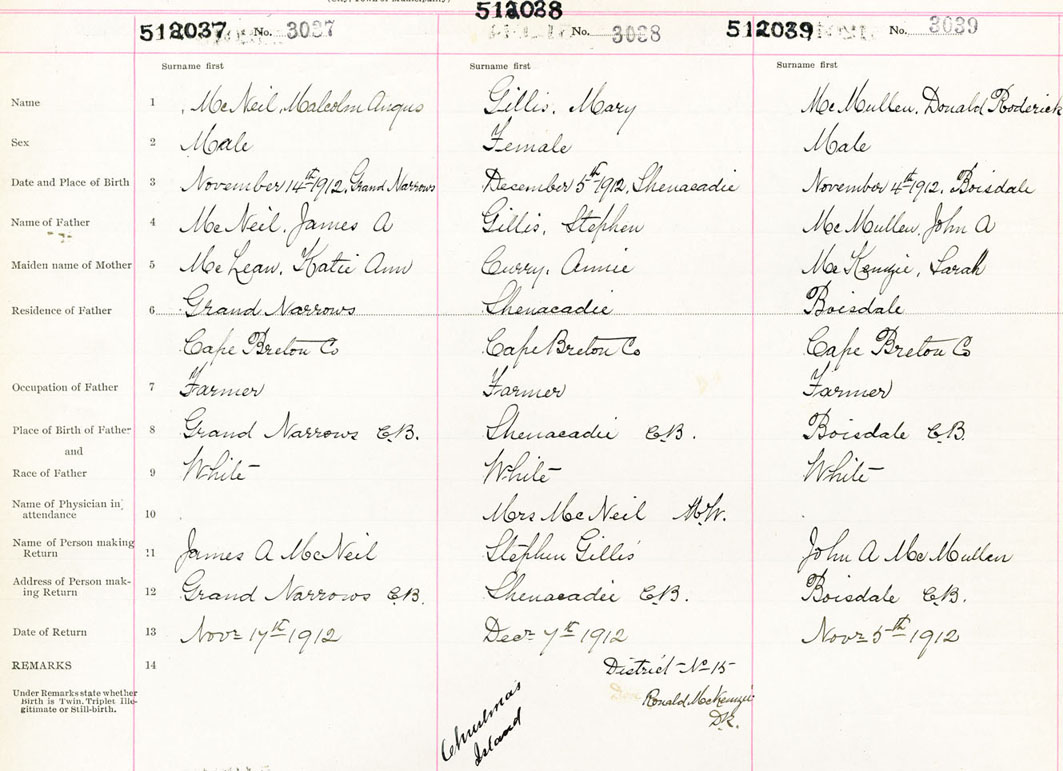 (City, Town or Municipality)
512037 No. 3037 512038 No. 3038 512039 No. 3039
Surname first Surname first Surname first
Name 1 McNeil, Malcolm Angus Gillis, Mary McMullen, Donald Roderick
Sex 2 Male Female Male
Date and Place of Birth 3 November 14th 1912, Grand Narrows December 5th 1912, Shenacadie November 4th 1912, Boisdale
Name of Father 4 McNeil, James A Gillis, Stephen McMullen, John A
Maiden name of Mother 5 McLean, Katie Ann Curry, Annie McKenzie, Sarah
Residence of Father 6 Grand Narrows Shenacadie Boisdale
Cape Breton Co Cape Breton Co Cape Breton Co
Occupation of Father 7 Farmer Farmer Farmer
Place of Birth of Father 8 Grand Narrows C.B. Shenacadie C.B. Boisdale C.B.
and
Race of Father 9 White White White
Name of Physician in
attendance 10 Mrs McNeil M.W.
Name of Person making
Return 11 James A McNeil Stephen Gillis John A McMullen
Address of Person mak-
ing Return 12 Grand Narrows C.B. Shenacadie C.B. Boisdale C.B.
Date of Return 13 Novr 17th 1912 Decr 7th 1912 Novr 5th 1912
REMARKS 14 District No 15
Under Remarks state whether
Birth is Twin, Triplet Ille-
gitimate or Still-birth.
Ronald McKenzie
D.R.
Christmas
Island